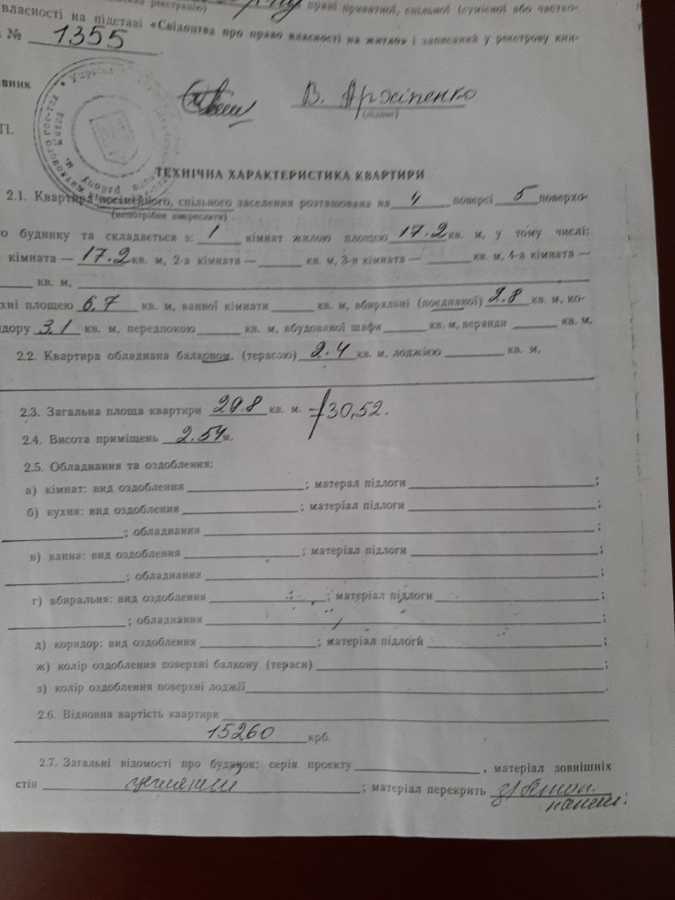 реєстрацію) праві приватної, спільної (сумісної або частко-
власності на підставі «Свідоцтва про право власності на житло» і записаний у реєстрову кни-
№ 1355
вник В. Архіпенко
(підпис)
П.
ТЕХНІЧНА ХАРАКТЕРИСТИКА КВАРТИРИ
2.1. Квартира посімейного, спільного заселення розташована на 4 поверсі 5 поверхо-
(непотрібне викреслити)
го будинку та складається з: 1 кімнат жилою площею 17.2 кв. м, у тому числі:
кімната — 17.2 кв. м, 2-а кімната — кв. м, 3-я кімната — кв. м, 4-а кімната —
кв. м,
хні площею 6,7 кв. м, ванної кімнати кв. м, вбиральні (поєднаної) 2.8 кв. м, ко-
идору 3,1 кв. м, передпокою кв. м, вбудованої шафи кв. м, веранди кв. м,
2.2. Квартира обладнана балконом, (терасою) 2.4 кв. м, лоджією кв. м,
2.3. Загальна площа квартири 29.8 кв. м. 30,52.
2.4. Висота приміщень 2.54 м.
2.5. Обладнання та оздоблення:
а) кімнат: вид оздоблення ; матерал підлоги ;
б) кухня: вид оздоблення ; матеріал підлоги ;
; обладнання ;
в) ванна: вид оздоблення ; матеріал підлоги ;
; обладнання ;
г) вбиральня: вид оздоблення ; матеріал підлоги ;
; обладнання ;
д) коридор: вид оздоблення ; матеріал підлоги ;
ж) колір оздоблення поверхні балкону (тераси) ;
з) колір оздоблення поверхні лоджії .
2.6. Відновна вартість квартири
15260 крб.
2.7. Загальні відомості про будинок: серія проекту , матеріал зовнішніх
стін цегляний ; матеріал перекрить
панели.